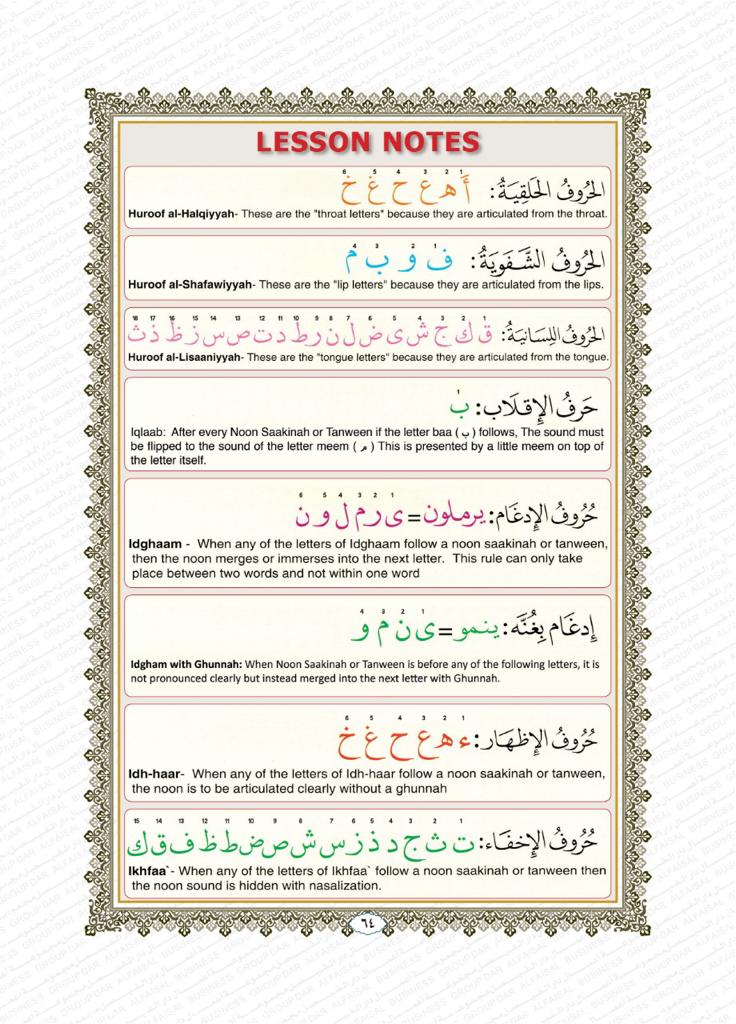 LESSON NOTES
6 5 4 3 2 1
الحُرُوفُ الحَلَقِيَةُ: أَ هـ ع ح غ خ
Huroof al-Halqiyyah- These are the "throat letters" because they are articulated from the throat.
4 3 2 1
الحُرُوفُ الشَّفَوِيَةُ: ف و ب م
Huroof al-Shafawiyyah- These are the "lip letters" because they are articulated from the lips.
18 17 16 15 14 13 12 11 10 9 8 7 6 5 4 3 2 1
الحُرُوفُ اللِسَانِيَةُ: ق ك ج ش ى ض ل ن ر ط د ت ص س ز ظ ذ ث
Huroof al-Lisaaniyyah- These are the "tongue letters" because they are articulated from the tongue.
1
حَرفُ الإِقلَاب: ب
Iqlaab: After every Noon Saakinah or Tanween if the letter baa ( ب ) follows, The sound must
be flipped to the sound of the letter meem ( م ) This is presented by a little meem on top of
the letter itself.
6 5 4 3 2 1
حُرُوفُ الإِدغَام: يرملون = ى ر م ل و ن
Idghaam - When any of the letters of Idghaam follow a noon saakinah or tanween,
then the noon merges or immerses into the next letter. This rule can only take
place between two words and not within one word
4 3 2 1
إِدغَام بِغُنَّه: ينمو = ى ن م و
Idgham with Ghunnah: When Noon Saakinah or Tanween is before any of the following letters, it is
not pronounced clearly but instead merged into the next letter with Ghunnah.
6 5 4 3 2 1
حُرُوفُ الإِظهَار: ء هـ ع ح غ خ
Idh-haar- When any of the letters of Idh-haar follow a noon saakinah or tanween,
the noon is to be articulated clearly without a ghunnah
15 14 13 12 11 10 9 8 7 6 5 4 3 2 1
حُرُوفُ الإِخفَاء: ت ث ج د ذ ز س ش ص ض ط ظ ف ق ك
Ikhfaa`- When any of the letters of Ikhfaa` follow a noon saakinah or tanween then
the noon sound is hidden with nasalization.
٦٤